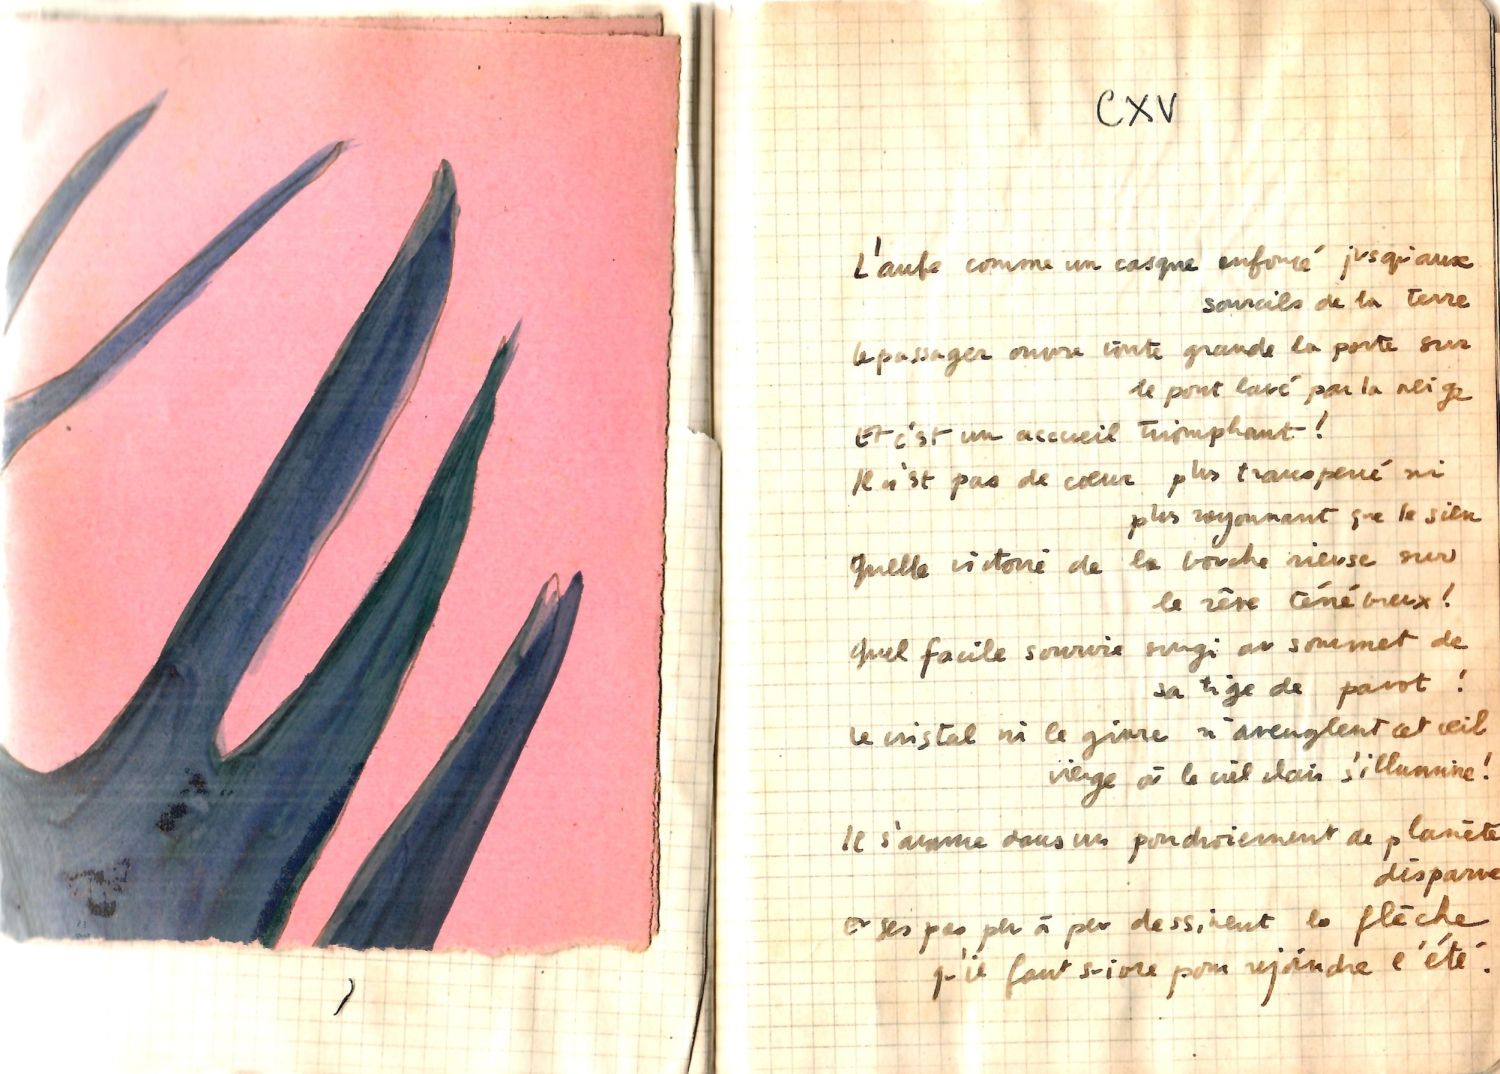 CXV
L'aube comme un casque enfoncé jusqu'aux
sourcils de la terre
le passager ouvre toute grande la porte sur
le pont lavé par la neige
Et c'est un accueil triomphant !
Il n'est pas de cœur plus transpercé ni
plus rayonnant que le sien
Quelle victoire de la bouche rieuse sur
le rêve ténébreux !
Quel facile sourire surgi au sommet de
sa tige de pavot !
Le cristal ni le givre n'aveuglent cet œil
vierge où le ciel clair s'illumine !
Il s'avance dans un poudroiement de planète
disparue
Et ses pas peu à peu dessinent la flèche
qu'il faut suivre pour rejoindre l'été.